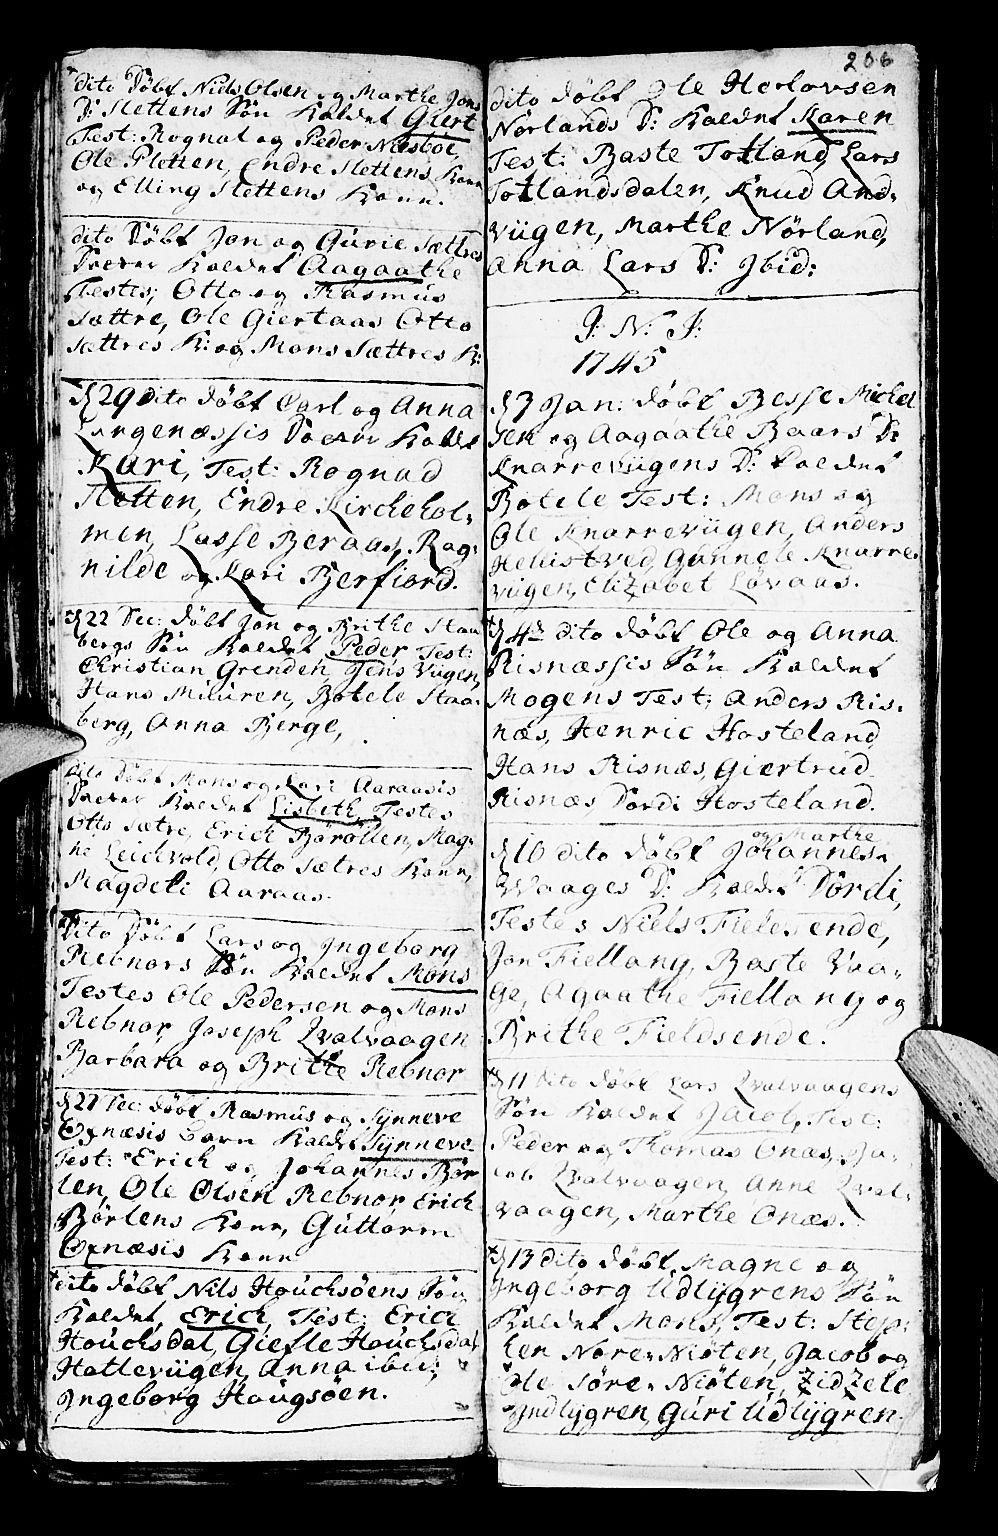 dito Døbt Niels Olsen og Marthe Jons
D: Slettens Søn Kaldet Giert
Test: Rognal og Peder Næsbøe,
Ole Fletten, Endre Slettens Kone
og Elling Slettens Kone.
dito Døbt Jon og Gurie Sættres
Datter Kaldet Aagaathe
Testes; Otto og Rasmus
Sættre, Ole Giertaas Otto
Sættres K: og Mons Sættres K:
D 29 dito døbt Carl og Anna
Langenæssis Datter Kaldet
Kari, Test: Rognad
Sletten, Endre Kirchehol-
men, Lasse Beraas, Rag-
nilde og Kari Bierfiord.
D 22 Dec: døbt Jon og Brithe Staa
bergs Søn Kaldet Peder Test:
Christian Grenden, Jens Viigen,
Hans Muuren, Botele Staa-
berg, Anna Berge,
Dito Døbt Mons og Kari Aaraasis
Datter Kaldet Lisbeth, Testes
Otto Sætre, Erick Børøllen, Mag-
ne Leichvold, Otto Sætres Kone,
Magdeli Aaraas.
Dito Døbt Lars og Ingeborg
Rebnors Søn Kaldet Mons
Testes Ole Pedersen og Mons
Rebnor, Joseph Qvalvaagen
Barbara og Brithe Rebnor
D 27 Dec: døbt Rasmus og Synneve
Exnæsis barn Kaldet Synneve
Test: Erich og Johannes Bør
len, Ole Olsen Rebnor, Erick
Børlens Kone, Guttorm
Exnæsis Kone
dito døbt Nils Houchsøens Søn
Kaldet, Erich, Test: Erich
Houchsdal, Gietle Houchsdal
Halleviigen, Anna ibid:
Ingeborg Haugsøen.
206
dito døbt Ole Herlovsen
Nørlands D: Kaldet Karen
Test: Baste Totland, Lars
Totlandsdalen, Knud And-
viigen, Marthe Nørland,
Anna Lars D: Ibid:
I: N: J:
1745
D 3 Jan: døbt Besse Michel
sen og Aagaathe Baars D:
Knarreviigens D: kaldet
Botele Test: Mons og
Ole Knarreviigen, Anders
Hellistved, Gunnele Knarre-
viigen, Elizabet Løvaas.
D 4de dito døbt Ole og Anna
Risnæssis Søn Kaldet
Mogens Test: Anders Ris-
næs, Henric Hosteland,
Hans Risnæs, Giertrud
Risnæs, Dordi Hosteland.
D 10 dito døbt Johannes og Marthe
Waages D: Kaldet Dordi,
Testes Niels Fieldsende,
Jon Fiellang, Baste Vaa-
ge, Agaathe Fiellang og
Brithe Fieldsende.
D 11 dito døbt Lars Qvalvaagens
Søn Kaldet Jacob, Test:
Peder og Thomas Onæs, Ja-
cob Qvalvaagen, Anne Qval-
vaagen, Marthe Onæs.
D 13 dito døbt Magne og
Ingeborg Udlygrens Søn
Kaldet Mons, Test: Step-
hen Nøre-Niøten, Jacob og
Ole Søre-Niøten, Zidzele
Indlygren, Guri Udlygren.